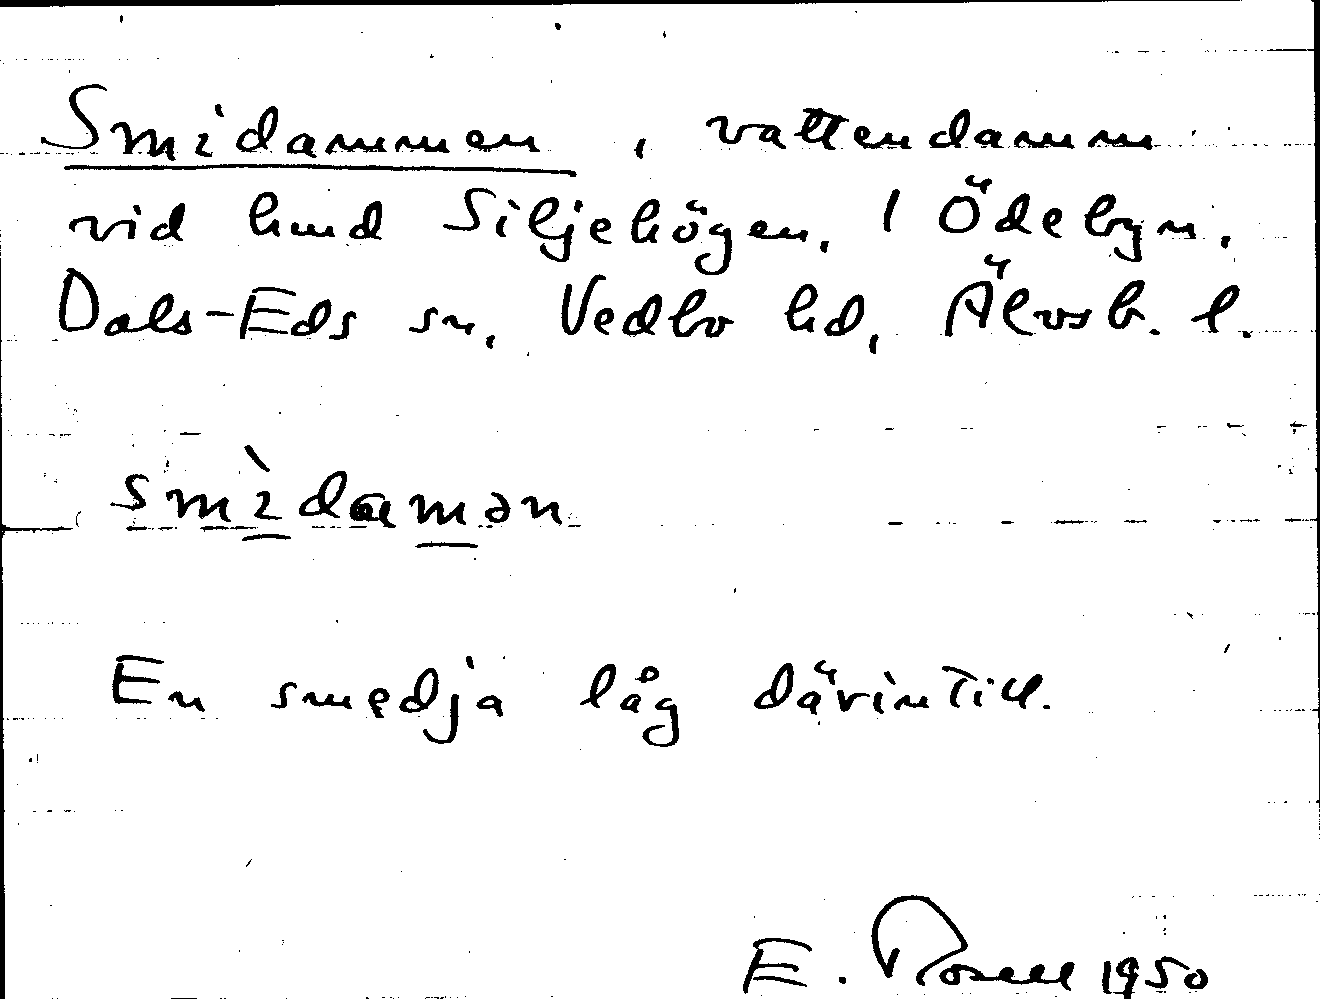 Smidammen, vattendamm
vid hmd Siljehögen, 1 Ödebyn,
Dals-Eds sn, Vedbo hd, Älvsb. l.
smìdamən
En smedja låg därintill.
E. Rosell 1950